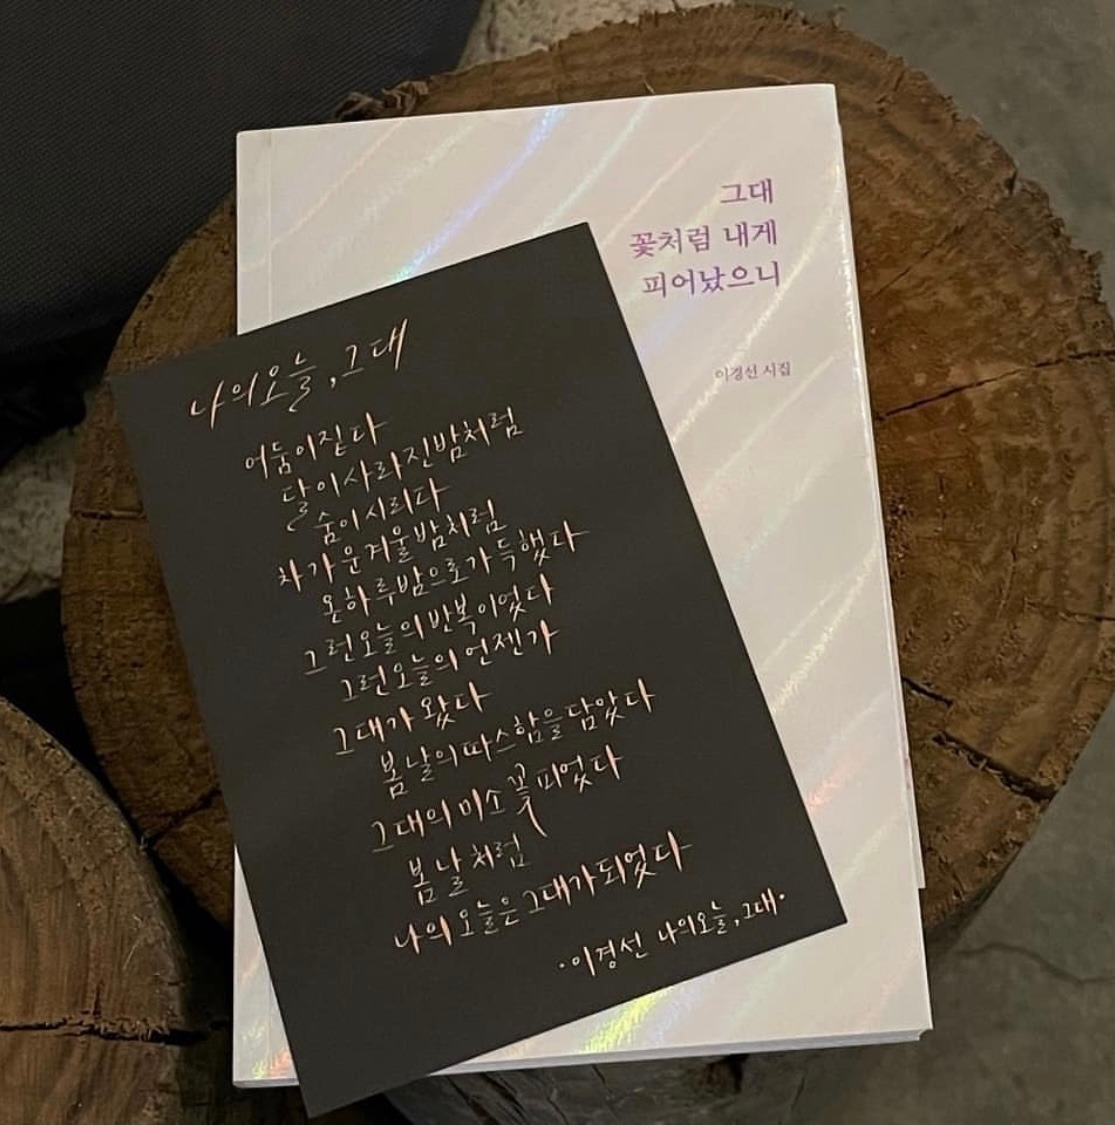 그대
꽃처럼 내게
피어났으니
이경선 시집
나의 오늘, 그대
어둠이 짙다
달이 사라진 밤처럼
숨이 시리다
차가운 겨울밤처럼
온 하루 밤으로 가득했다
그런 오늘의 반복이었다
그런 오늘의 언젠가
그대가 왔다
봄날의 따스함을 담았다
그대의 미소 꽃 피었다
봄날처럼
나의 오늘은 그대가 되었다
·이경선 나의 오늘, 그대·